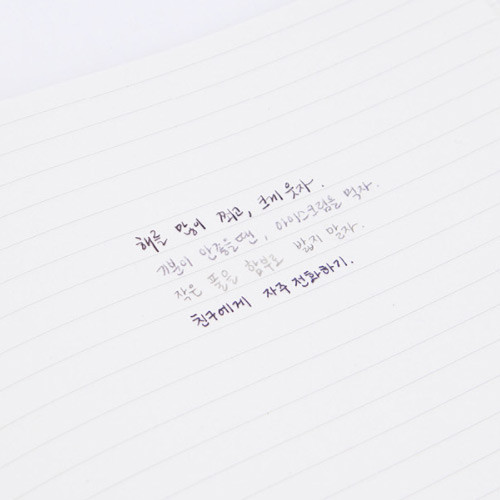 해를 많이 찍고, 크게 웃자.
기분이 안좋을땐, 아이스크림을 먹자.
작은 풀을 함부로 밟지 말자.
친구에게 자주 전화하기.